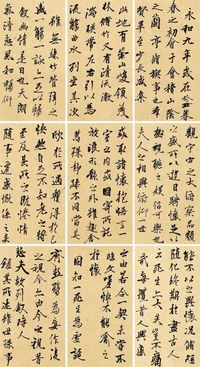 永和九年歲在癸丑暮
春之初會于會稽山陰
之蘭亭脩禊事也羣賢
畢至少長咸集
此地有崇山峻領茂
林脩竹又有清流激
湍映帶左右引以為
流觴曲水列坐其次
雖無絲竹管弦之
盛一觴一詠亦足以暢
敘幽情是日也天朗
氣清惠風和暢仰
觀宇宙之大俯察品類
之盛所以遊目騁懷足以
極視聽之娛信可樂也
夫人之相與俯仰一世
或取諸懷抱悟言一
室之內或因寄所託
放浪形骸之外雖趣
舍萬殊靜躁不同當其
欣於所遇暫得於己
快然自足不知老之將
至及其所之既惓情
隨事遷感慨係之矣
以之興懷況脩短
隨化終期於盡古人
云死生亦大矣豈不痛
哉每攬昔人興感
之由若合一契未嘗不
臨文嗟悼不能喻之
於懷
固知一死生為虛誕
齊彭殤為妄作後
之視今亦由今之視昔
悲夫故列敘時人
錄其所述雖世殊事